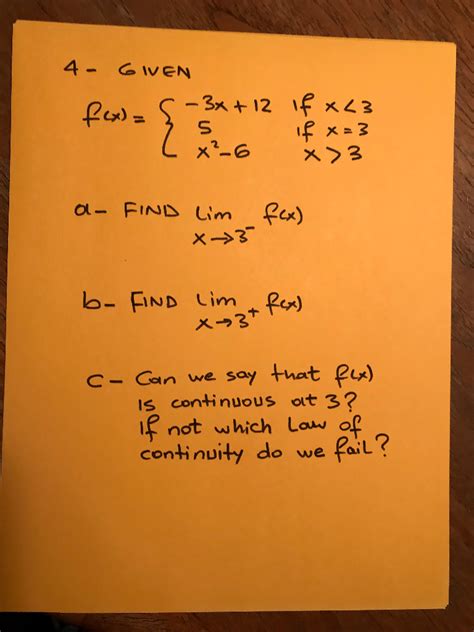 4- GIVEN
f(x) = { -3x + 12 if x < 3
5 if x = 3
x²-6 x > 3
a- FIND Lim f(x)
x→3⁻
b- FIND Lim f(x)
x→3⁺
c- Can we say that f(x)
is continuous at 3?
If not which Law of
continuity do we fail?